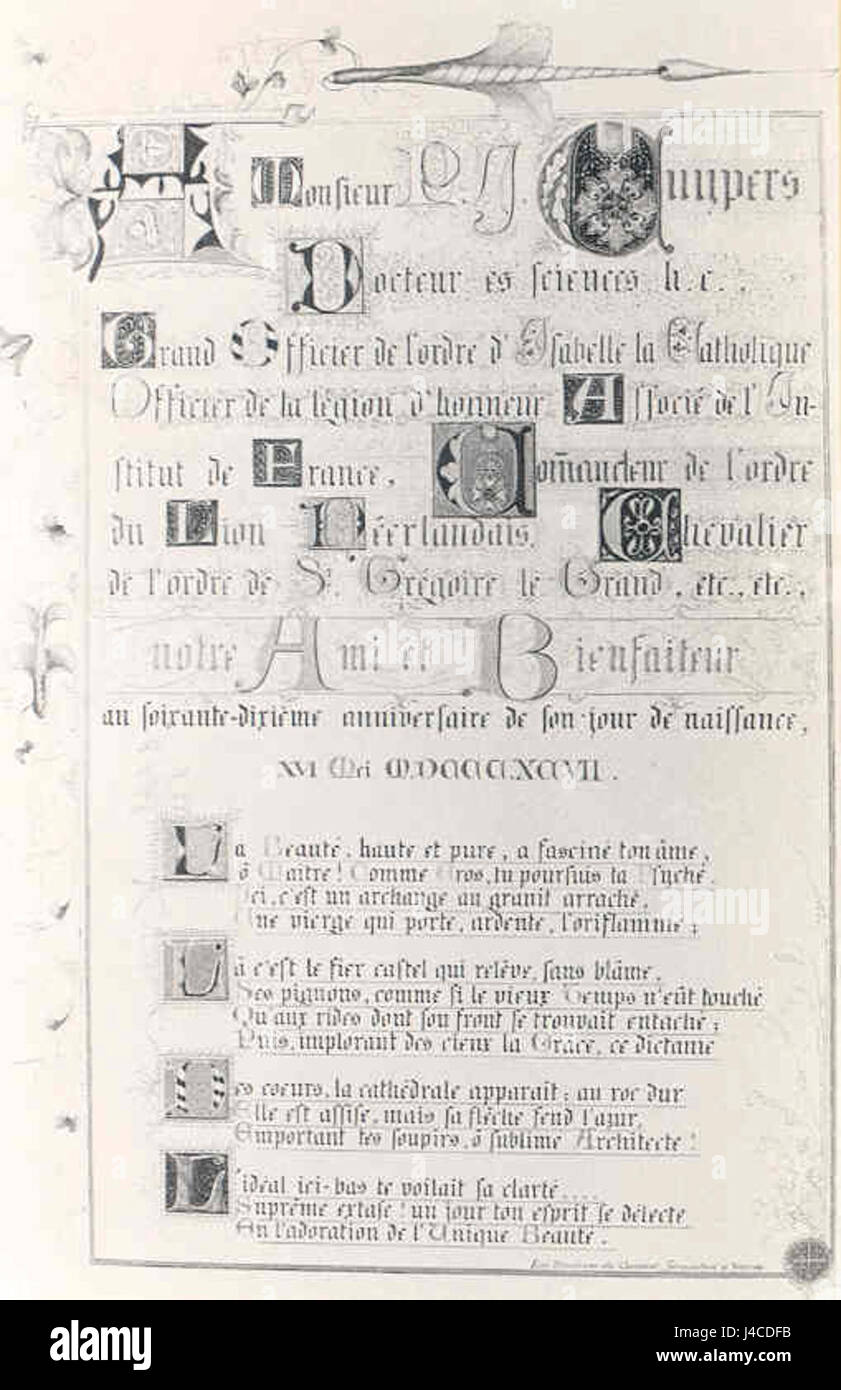 A Monsieur P. J. Cuypers
Docteur es sciences h. c.
Grand Officier de l'ordre d'Isabelle la Catholique
Officier de la légion d'honneur Associé de l'In-
stitut de France. Com̄andeur de l'ordre
du Lion Néerlandais. Chevalier
de l'ordre de St. Grégoire le Grand, etc., etc.,
notre Ami et Bienfaiteur
au soixante-dixième anniversaire de son jour de naissance,
XVI Mei MDCCCLXCVII.
La Beauté, haute et pure, a fasciné ton âme,
ô Maître! Comme Eros, tu poursuis ta Psyché.
Ici, c'est un archange au granit arraché,
Une vierge qui porte, ardente, l'oriflamme;
Là c'est le fier castel qui relève, sans blâme,
Ses pignons, comme si le vieux Temps n'eût touché
Qu'aux rides dont son front se trouvait entaché;
Puis, implorant des cieux la Grâce, ce dictame
Des coeurs, la cathédrale apparait: au roc dur
Elle est assise, mais sa flèche fend l'azur,
Emportant tes soupirs, ô sublime Architecte!
L'idéal ici-bas te voilait sa clarté....
Suprême extase! un jour ton esprit se délecte
En l'adoration de l'Unique Beauté.
alamy
alamy
Image ID: J4CDFB
www.alamy.com